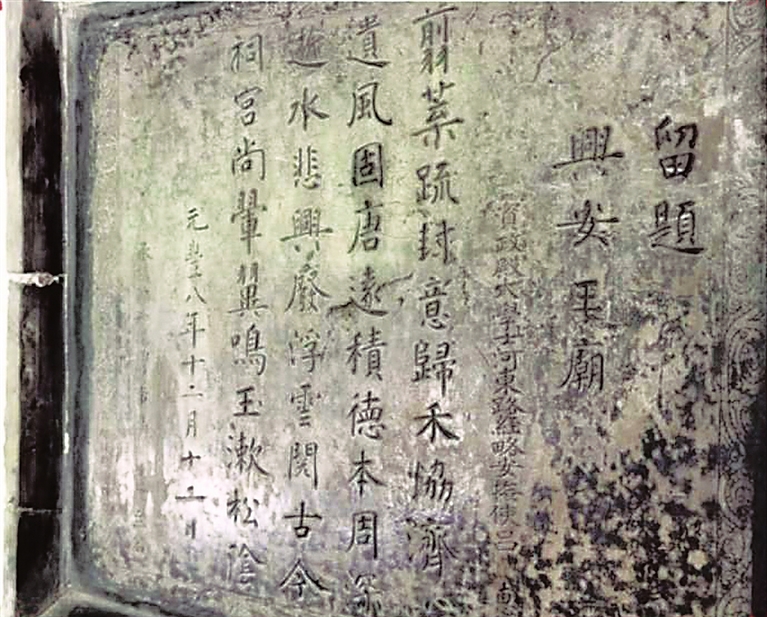 留題
興安王廟
資政殿大學士河東路經略安撫使呂
翦葉疏封意歸禾協濟
遺風固唐遠積德本周深
逝水悲興廢浮雲閱古今
祠宮尚翬翼鳴玉漱松陰
元豐八年十二月十二日